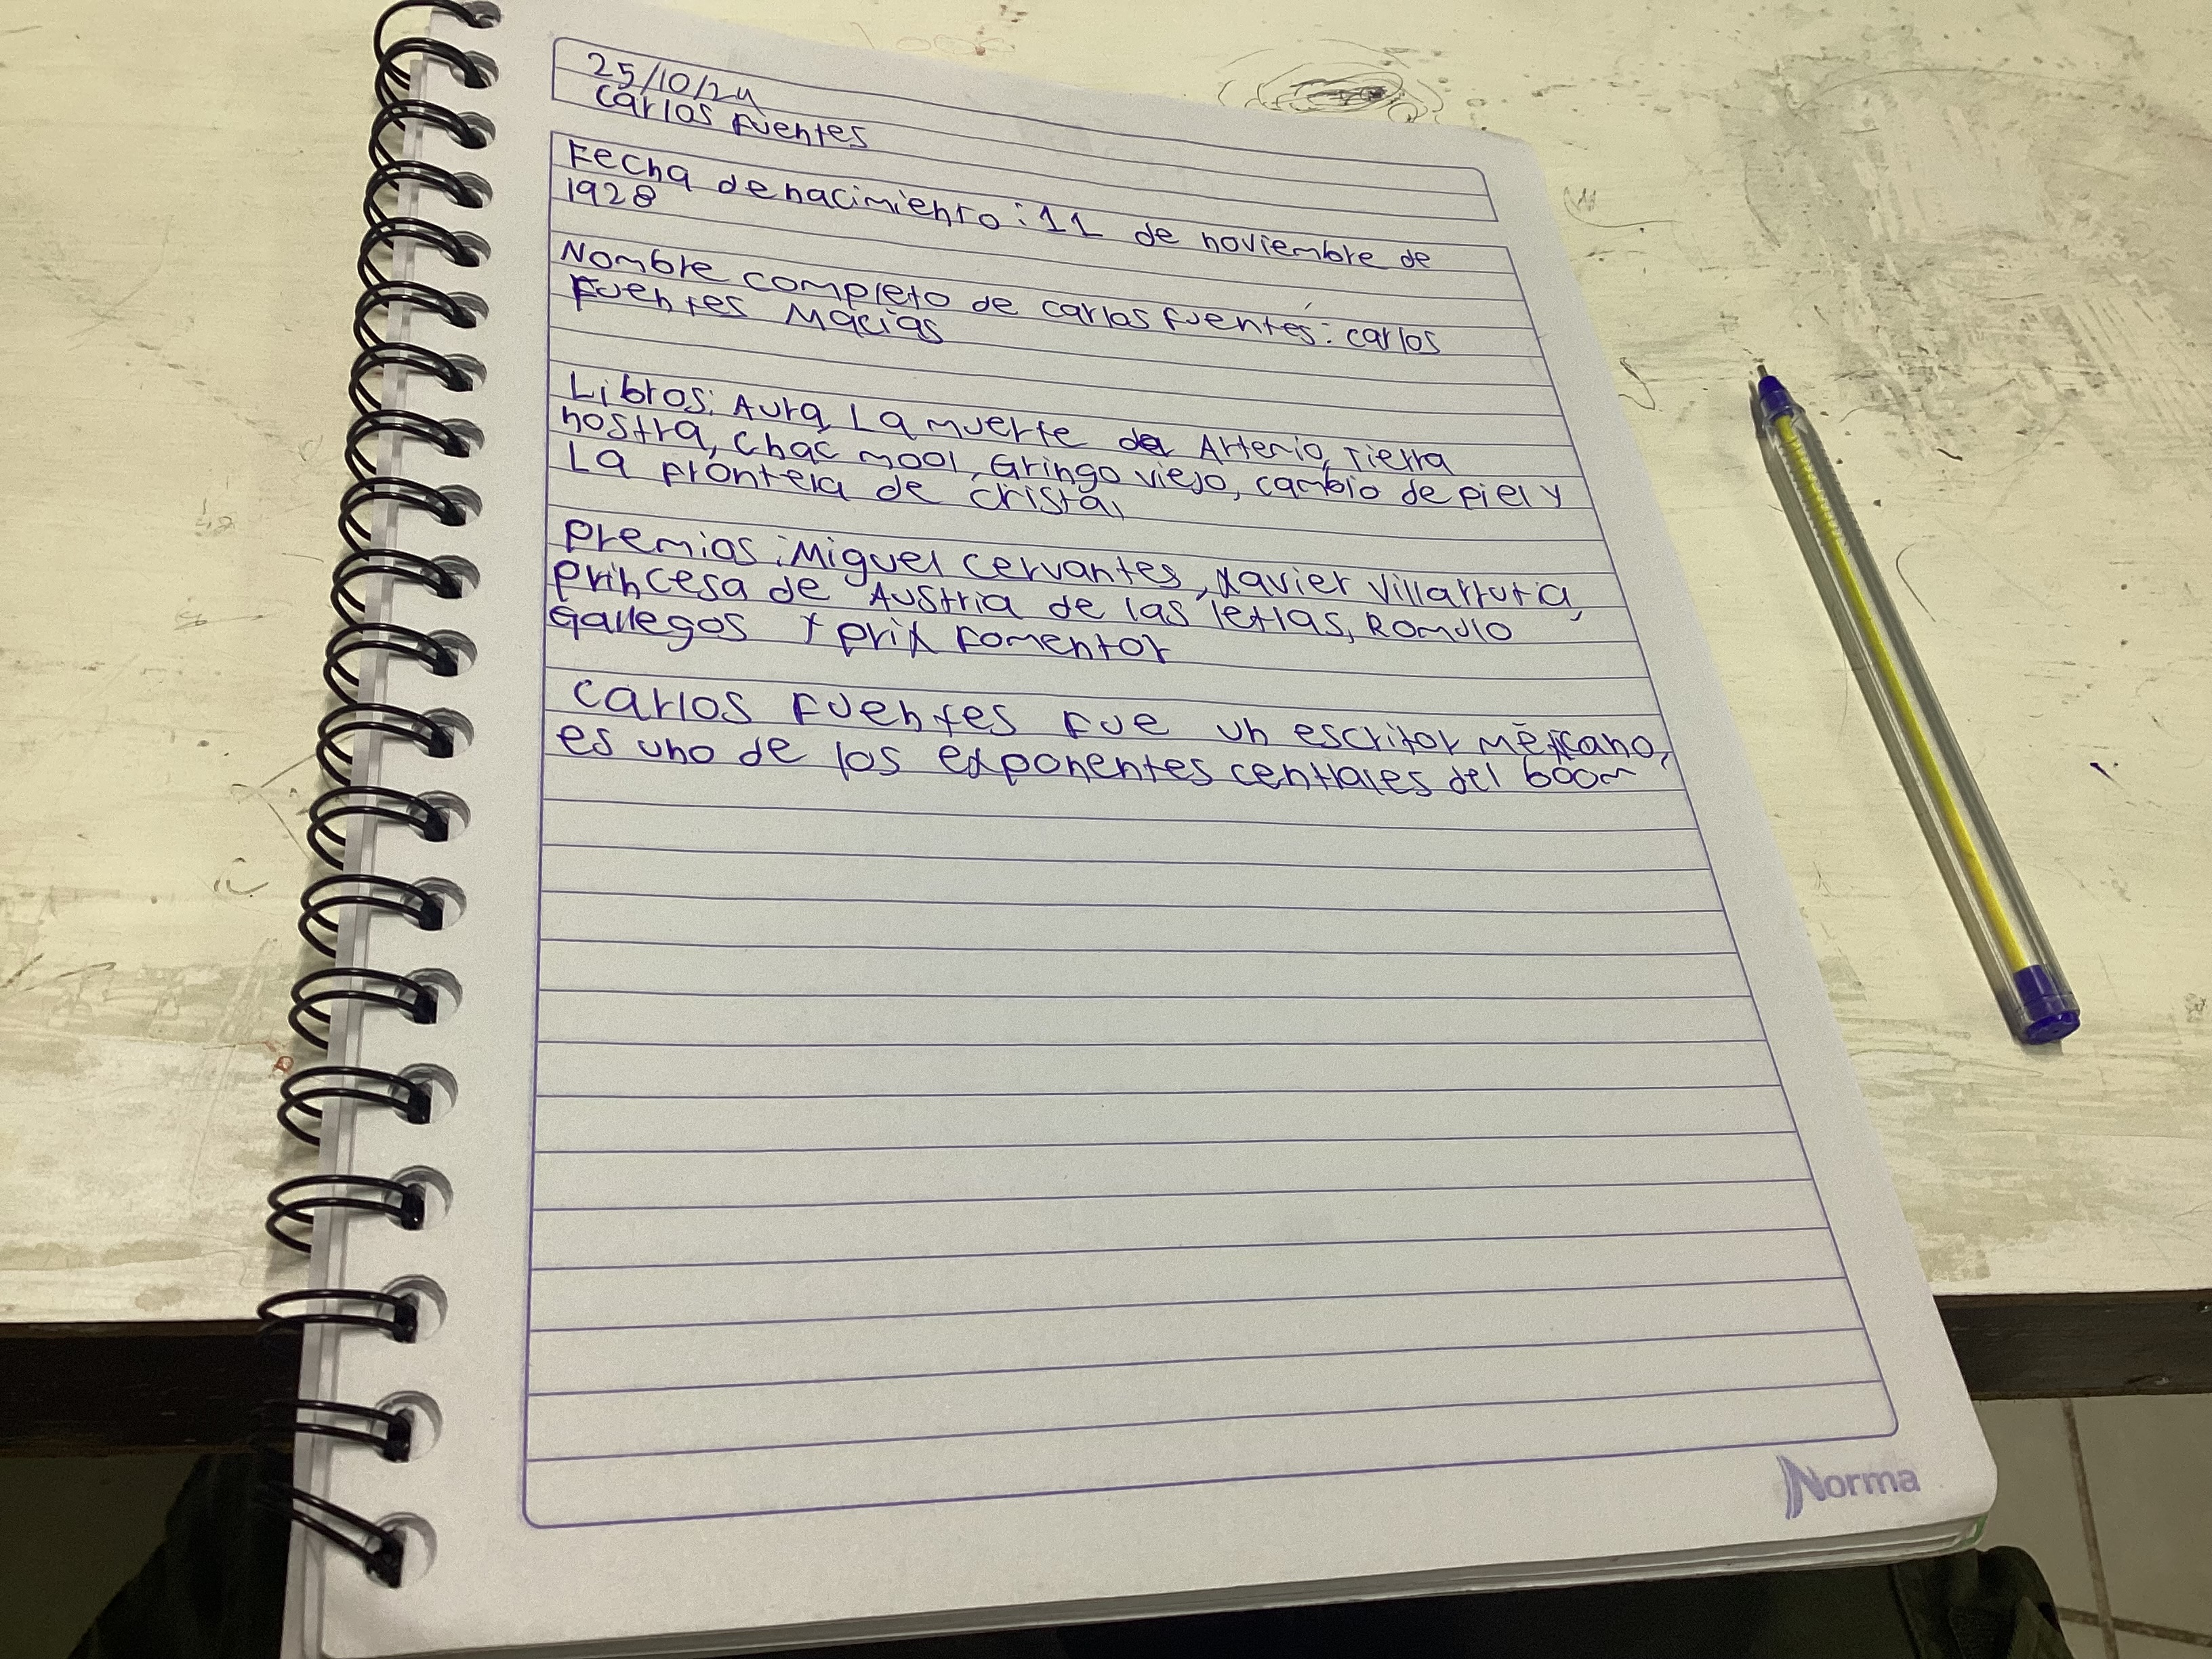 25/10/24
Carlos Fuentes
Fecha de nacimiento: 11 de noviembre de
1928
Nombre completo de Carlos Fuentes: Carlos
Fuentes Macias
Libros: Aura, La muerte de Artemio, Tierra
nostra, Chac mool, Gringo viejo, cambio de piel y
La frontera de cristal
Premios: Miguel Cervantes, Xavier Villarruria,
Princesa de Austria de las letras, Romulo
Gallegos y prix Fomentor
Carlos Fuentes fue un escritor méxicano,
es uno de los exponentes centrales del boom
Norma